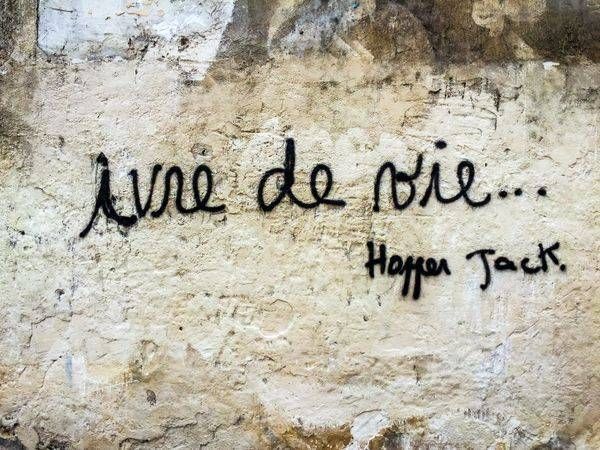 ivre de vie...
Happer Jack.